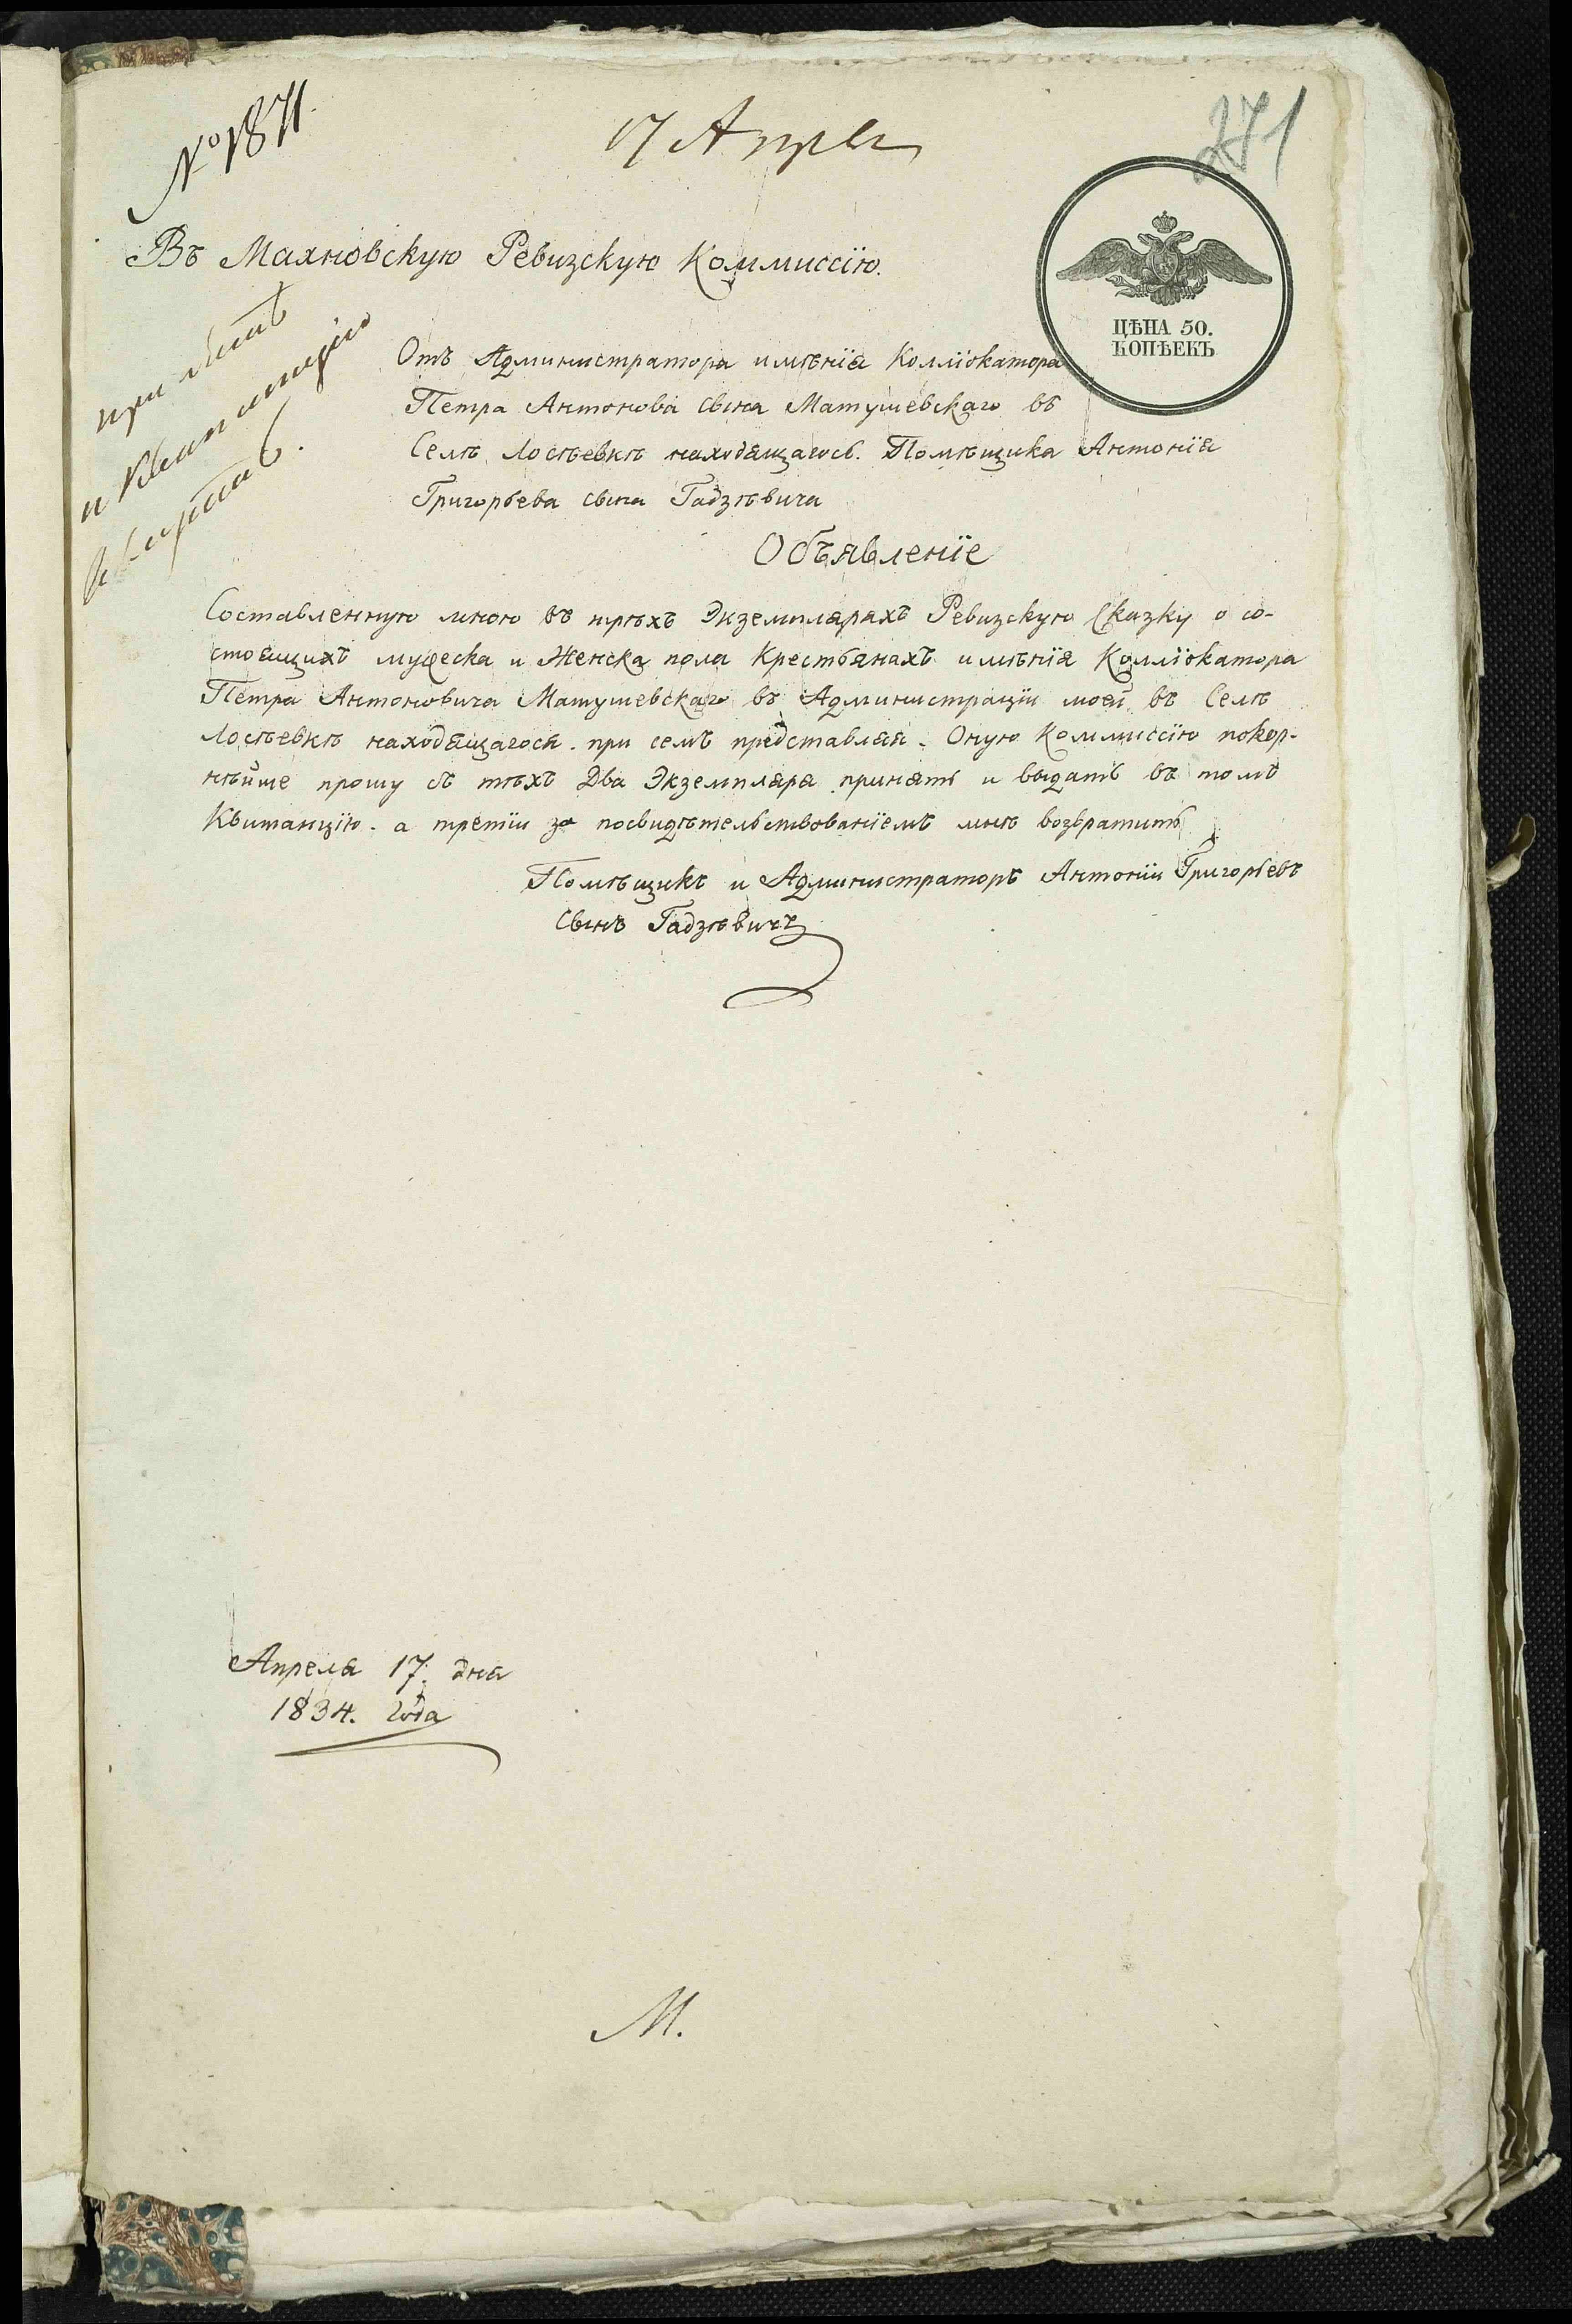 № 1871.
17 Апреля
271
Въ Махновскую Ревизскую Коммиссїю.
ЦѢНА 50.
КОПѢЕКЪ
принять
и квитанцію
Отъ Администратора имѣнїя Коллїокатора
Петра Антонова сына Матушевскаго въ
Селѣ Лосѣевкѣ находящагось. Помѣщика Антонїя
Григорьева сына Гадзѣвича
Объявленїе
Составленную мною въ трѣхъ Экземплярахъ Ревизскую Сказку о со-
стоящихъ мужеска и Женска пола Крестьянахъ имѣнїя Коллїокатора
Петра Антоновича Матушевскаго въ Администрацїи моей въ Селѣ
Лосѣевкѣ находящагося. при семъ представляя. Оную Коммиссїю покор-
нѣйше прошу съ тѣхъ Два Экземпляра принять и выдать въ томъ
Квитанцїю. а третїи за посвидѣтельствованїемъ мнѣ возвратить
Помѣщикъ и Администраторъ Антонїи Григорьевъ
Сынъ Гадзѣвичъ
Апреля 17. дня
1834. года
М.